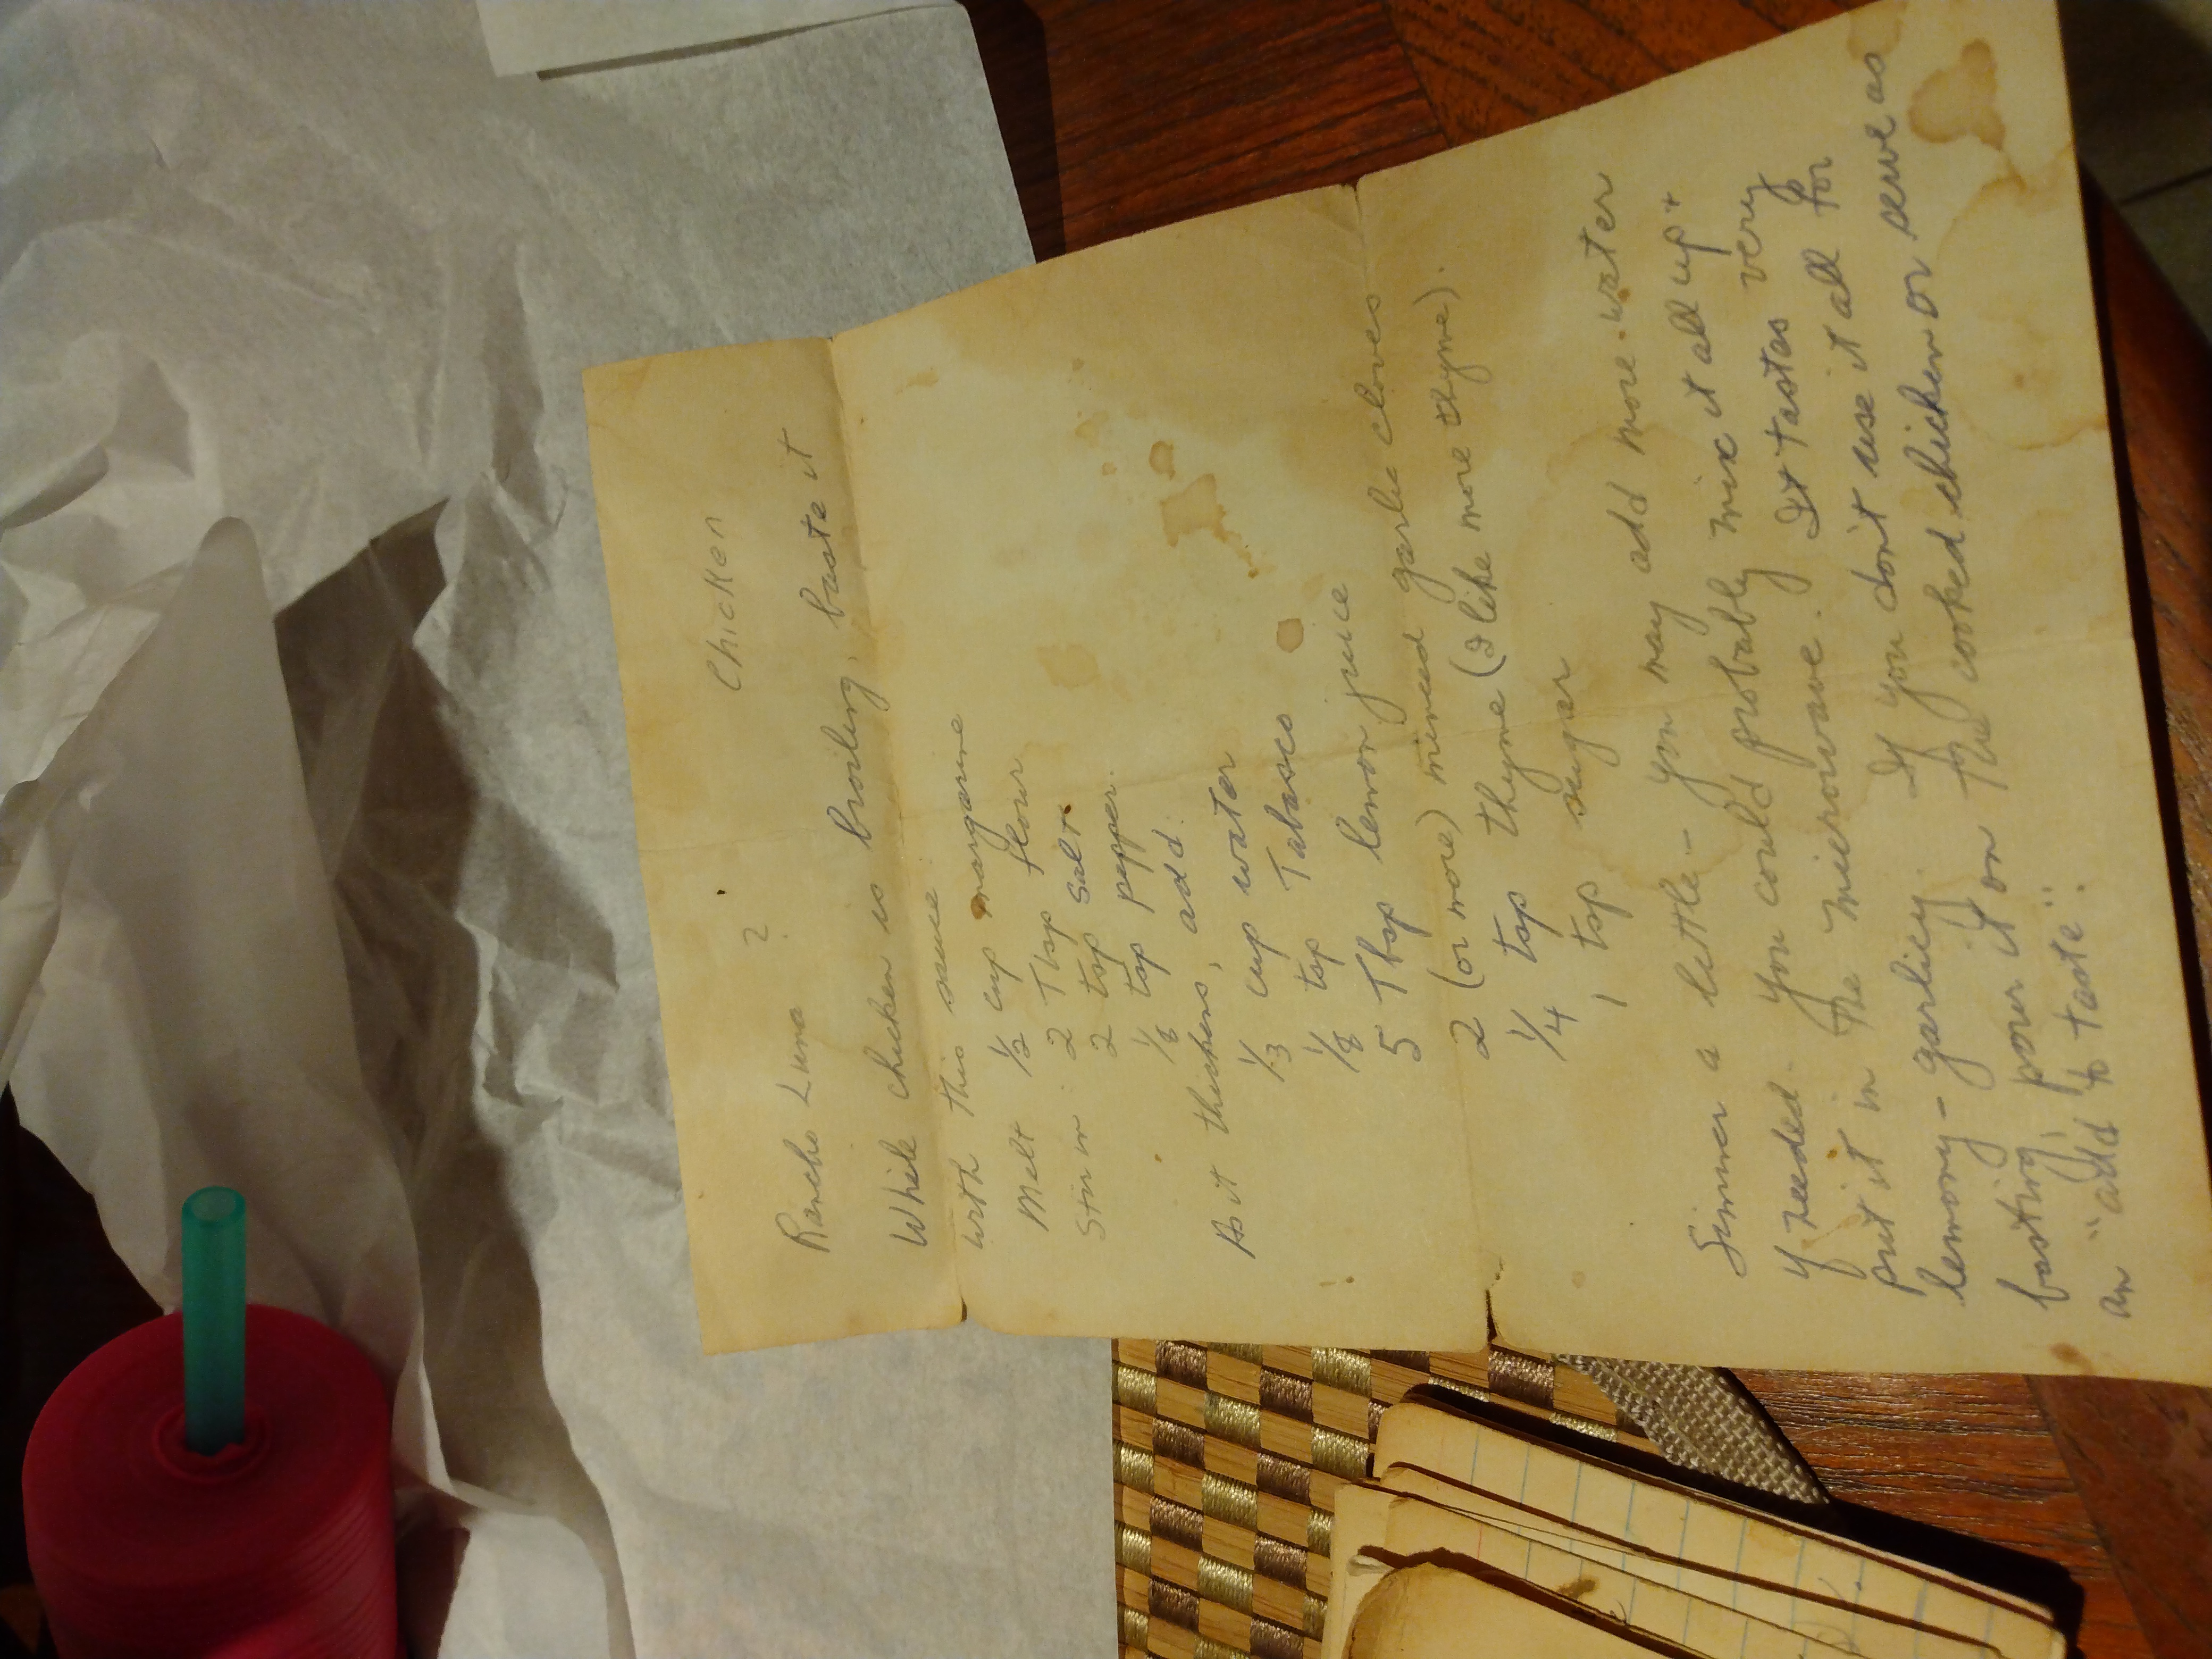 Chicken
Rancho Luna ?
While chicken is broiling, baste it
with this sauce
Melt 1/2 cup margarine
Stir in: 2 Tbsp flour
2 tsp salt
1/8 tsp pepper.
As it thickens, add:
1/3 cup water
1/8 tsp Tabasco
5 Tbsp lemon juice
2 (or more) minced garlic cloves
1/4 tsp thyme (I like more thyme).
1 tsp sugar
Simmer a little - you may add more water
if needed. You could probably mix it all up +
put it in the microwave. It tastes very
lemony - garlicy. If you don't use it all for
basting, pour it on the cooked chicken or serve as
an "add to taste".